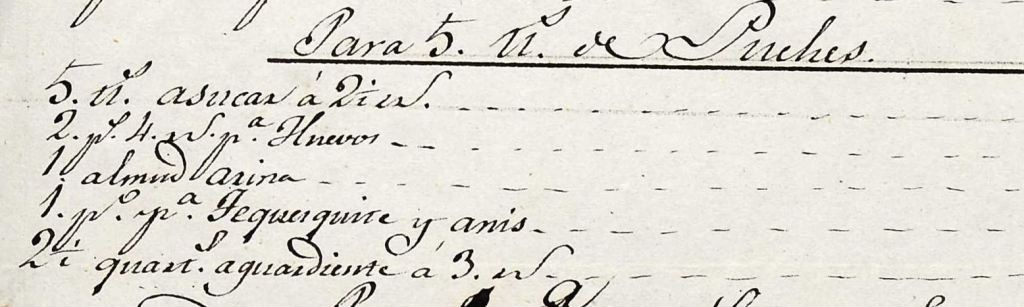 Para 5. tt. de Puches.
5. tt. asucar à 2½ rs.
2. ps. 4. rs. pa. Huevos
1. almud arina
1. po. pa. Tequesquite y anis
2½ quarts. aguardiente á 3. rs